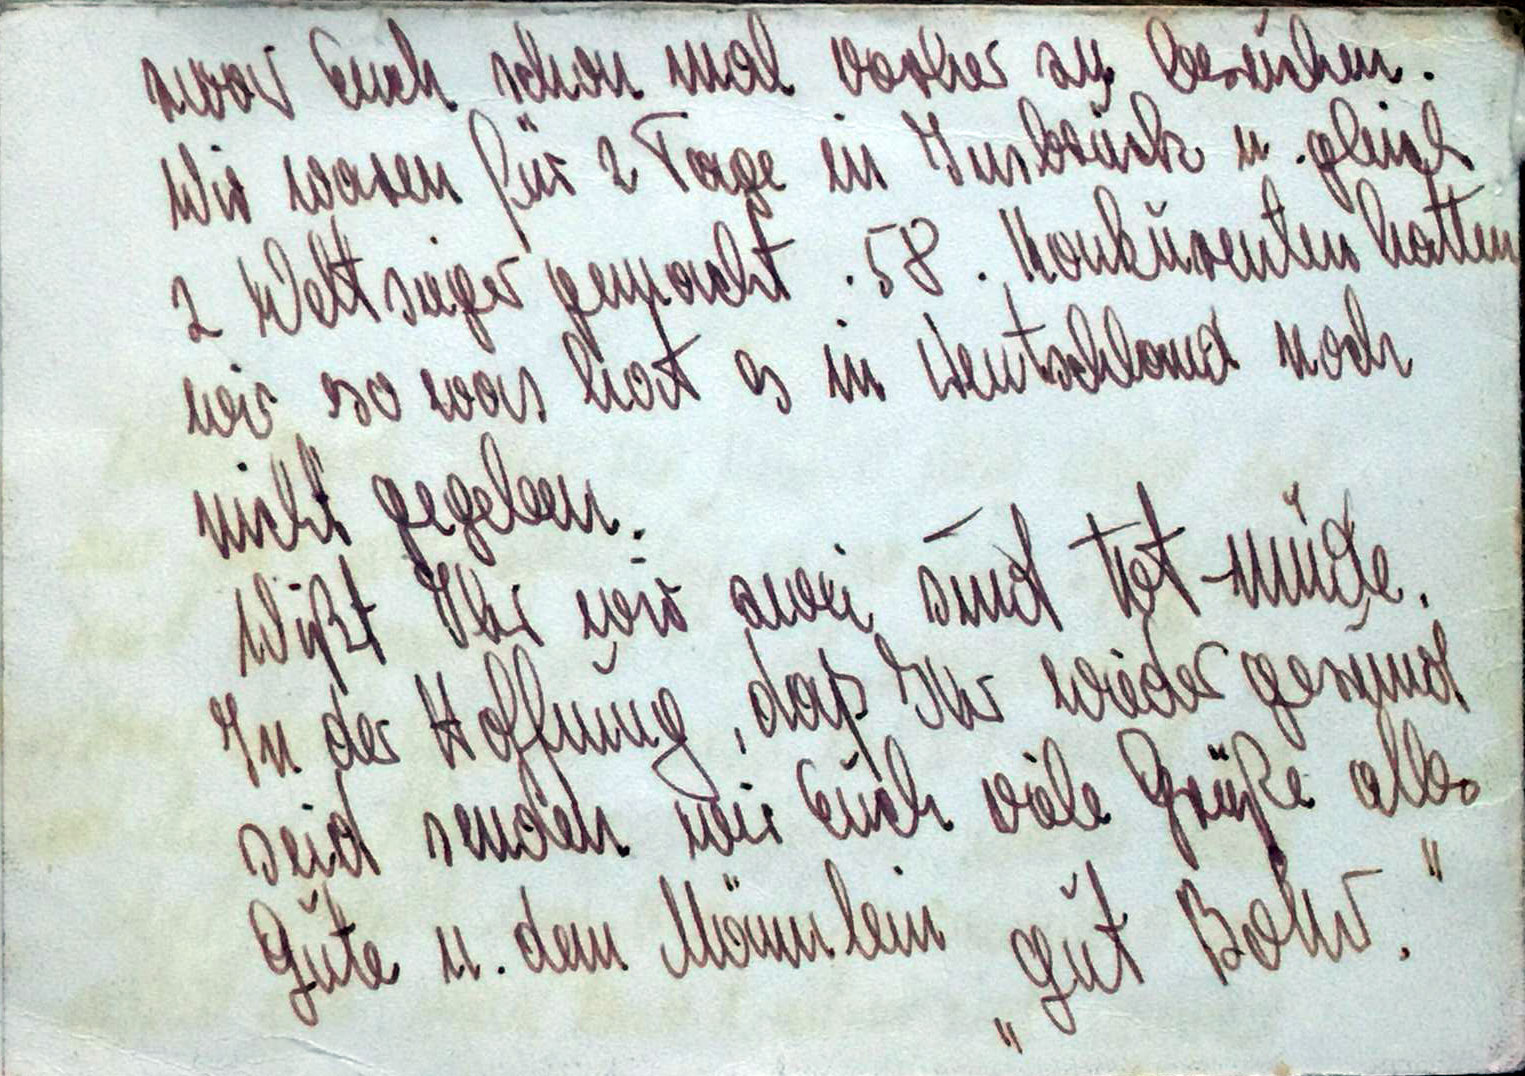 zwar Euch schon mal vorher zu besuchen.
Wir waren für 2 Tage in Insbrück u. gleich
2 Weltsieger gemacht. 58. Konkurenten hatten
wir so was hat es in Deutschland noch
nicht gegeben.
Wißt Ihr wir zwei sind tot-müde.
In der Hoffnung, daß Ihr wieder gesund
seid senden wir Euch viele Grüße alles
Gute u. dem Männlein „gut Bohr."